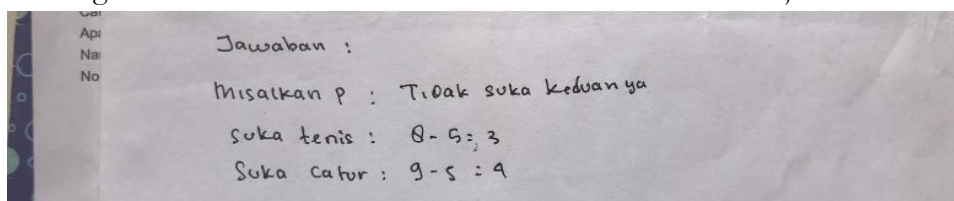 Apa
Na
No
Jawaban :
Misalkan P : Tidak suka keduanya
Suka tenis : 8 - 5 = 3
Suka catur : 9 - 5 = 4